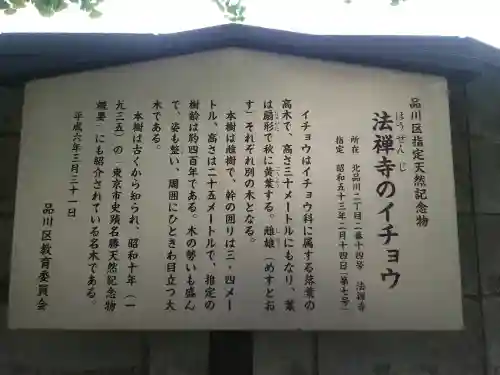 品川区指定天然記念物
ほうぜんじ
法禅寺のイチョウ
所在 北品川二丁目二番十四号 法禅寺
指定 昭和五十三年二月十四日(第七号)
イチョウはイチョウ科に属する落葉の
高木で、高さ三十メートルにもなり、葉
は扇形で秋に黄葉する。雌雄(めすとお
す)それぞれ別の木となる。
本樹は雌樹で、幹の囲りは三・四メー
トル、高さは二十五メートルで、指定の
樹齢は約四百年である。木の勢いも盛ん
で、姿も整い、周囲にひときわ目立つ大
木である。
本樹は古くから知られ、昭和十年(一
九三五)の「東京市史蹟名勝天然記念物
概要」にも紹介されている名木である。
平成六年三月三十一日
品川区教育委員会